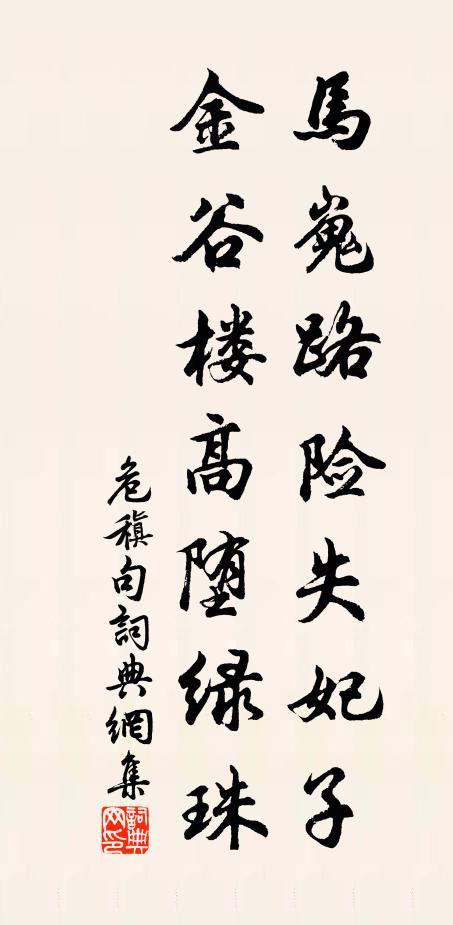 馬嵬路险失妃子
金谷楼高堕緑珠
危稹句詞典網集
詞典网印